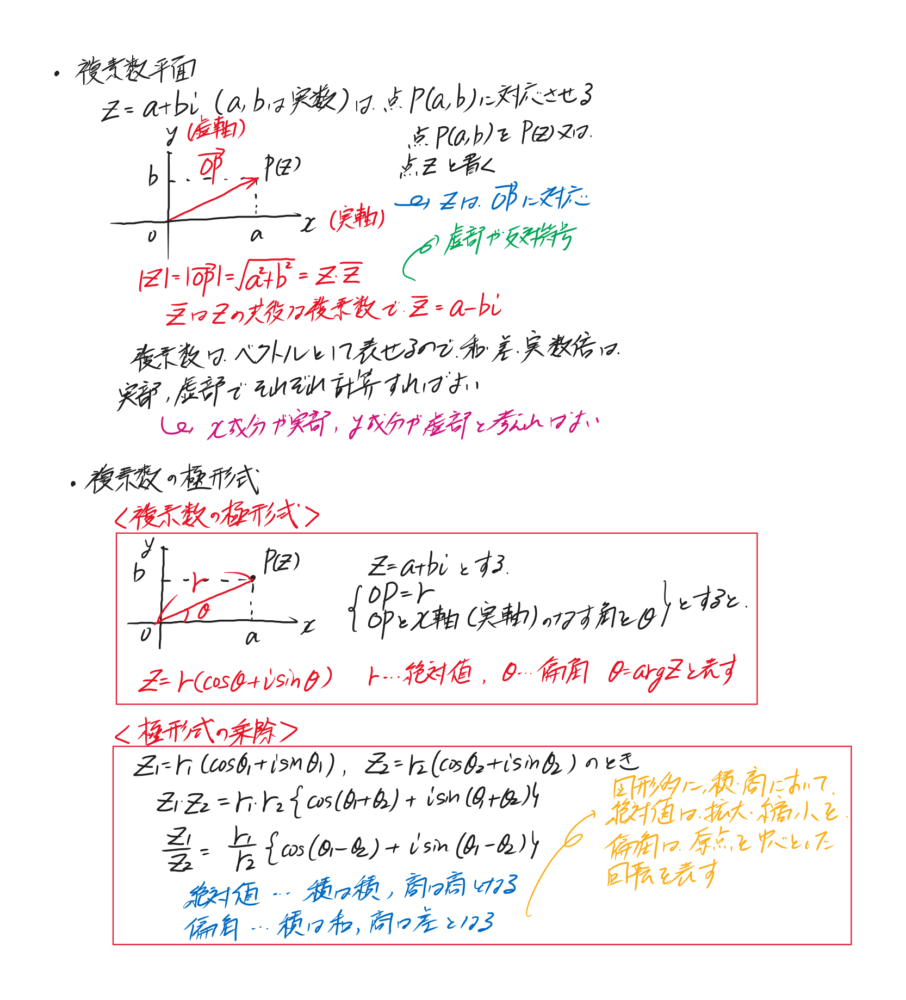 ・複素数平面
Z=a+bi (a,bは実数)は、点P(a,b)に対応させる
y (虚軸)
b
OP→
P(Z)
0
a
x (実軸)
点P(a,b)をP(Z)又は、
点Zと書く
↳Zは、OP→に対応
虚部が反対符号
|Z|=|OP→|=√(a²+b²)=Z・Z̄
Z̄はZの共役な複素数で、Z̄=a-bi
複素数は、ベクトルとして表せるので、和・差・実数倍は、
実部,虚部でそれぞれ計算すればよい
↳x成分が実部,y成分が虚部と考えればよい
・複素数の極形式
<複素数の極形式>
y
b
r
P(Z)
θ
0
a
x
Z=a+biとする.
{OP=r
OPとx軸(実軸)のなす角をθ}とすると、
Z=r(cosθ+isinθ) r…絶対値, θ…偏角 θ=argZと表す
<極形式の乗除>
Z₁=r₁(cosθ₁+isinθ₁), Z₂=r₂(cosθ₂+isinθ₂)のとき
Z₁・Z₂=r₁・r₂{cos(θ₁+θ₂)+isin(θ₁+θ₂)}
Z₁/Z₂=r₁/r₂{cos(θ₁-θ₂)+isin(θ₁-θ₂)}
絶対値…積は積,商は商となる
偏角…積は和,商は差となる
図形的に、積・商において、
絶対値は、拡大・縮小を
偏角は、原点を中心とした
回転を表す